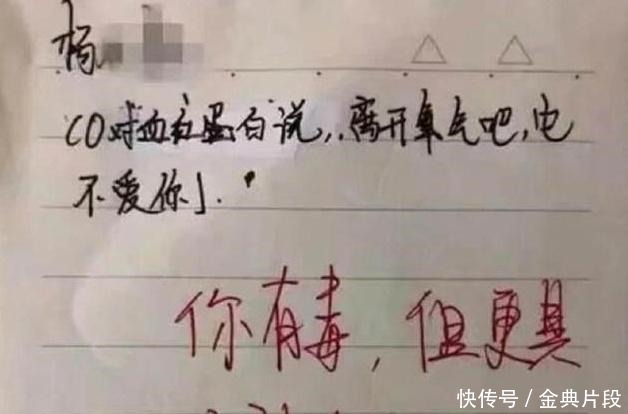 杨
CO对血红蛋白说，离开氧气吧，它
不爱你」.
你有毒，但更具
快传号 / 金典片段